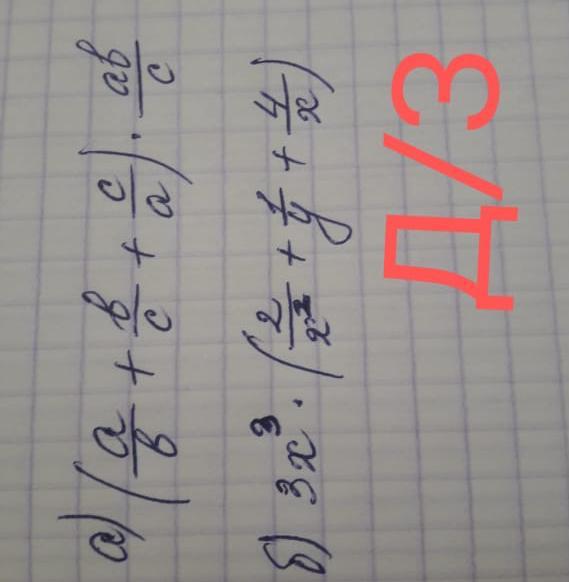 а) (a/b + b/c + c/a) · ab/c
б) 3x³ · (2/x² + 1/y + 4/x)
Д/З